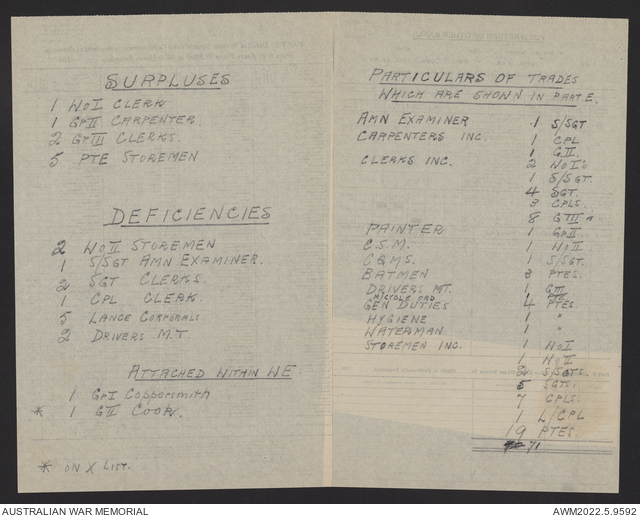 SURPLUSES
1 WOI CLERK
1 GpII CARPENTER.
2 GpIII CLERKS.
5 PTE STOREMEN
DEFICIENCIES
2 WOII STOREMEN
1 S/SGT AMN EXAMINER.
2 SGT CLERKS.
1 CPL CLERK
5 LANCE CORPORALS
2 DRIVERS M.T
ATTACHED WITHIN WE
1 GpI Coppersmith
* 1 GII COOK.
* ON X LIST.
PARTICULARS OF TRADES
WHICH ARE SHOWN IN PART E.
AMN EXAMINER 1 S/SGT
CARPENTERS INC. 1 CPL
1 GII.
CLERKS INC. 2 WOI's
1 S/SGT.
4 SGT.
3 CPLS.
8 GIII "
PAINTER 1 GpII
C.S.M. 1 WOII
C.Q.M.S. 1 S/SGT.
BATMEN 3 PTES.
DRIVERS MT. 1 GIII
M/CYCLE ORD PTE
GEN DUTIES 4 PTES.
HYGIENE 1 "
WATERMAN 1 "
STOREMEN INC. 1 WOI
1 WOII
2 S/SGTS.
5 SGTS.
7 CPLS.
1 L/CPL
19 PTES.
71
AUSTRALIAN WAR MEMORIAL
AWM2022.5.9592